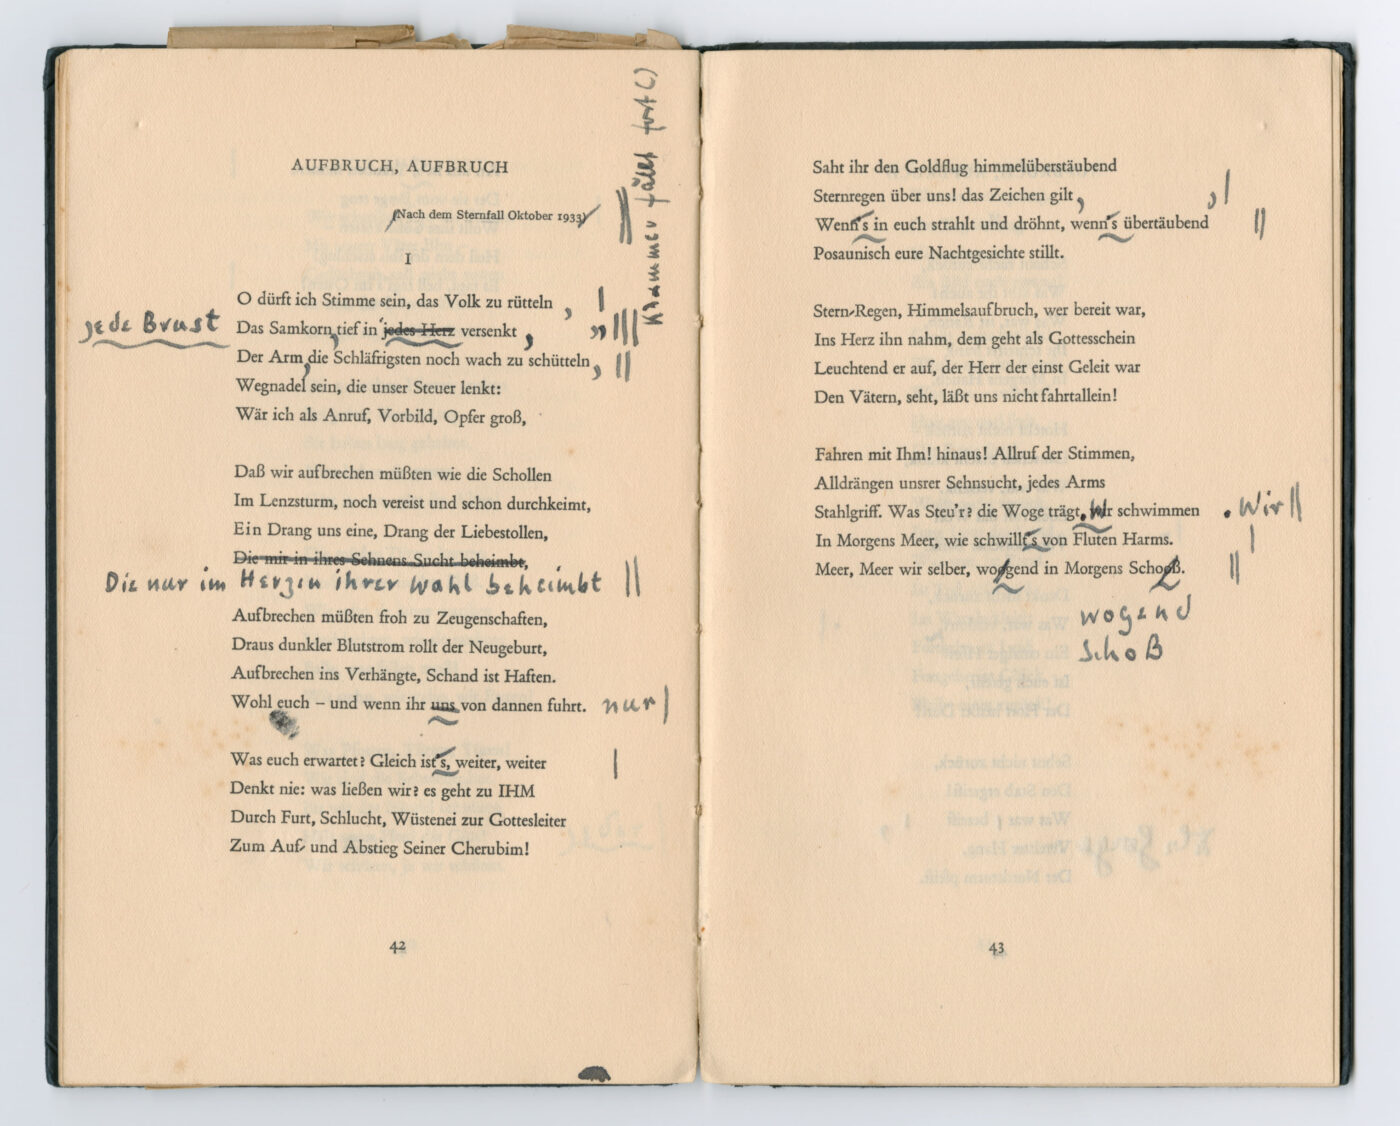 AUFBRUCH, AUFBRUCH
(Nach dem Sternfall Oktober 1933)
Klammer fällt fort ()
I
O dürft ich Stimme sein, das Volk zu rütteln ,
jede Brust
Das Samkorn, tief in jedes Herz versenkt ,
Der Arm, die Schläfrigsten noch wach zu schütteln,
Wegnadel sein, die unser Steuer lenkt:
Wär ich als Anruf, Vorbild, Opfer groß,
Daß wir aufbrechen müßten wie die Schollen
Im Lenzsturm, noch vereist und schon durchkeimt,
Ein Drang uns eine, Drang der Liebestollen,
Die mir in ihres Sehnens Sucht beheimbt,
Die nur im Herzen ihrer Wahl beheimbt
Aufbrechen müßten froh zu Zeugenschaften,
Draus dunkler Blutstrom rollt der Neugeburt,
Aufbrechen ins Verhängte, Schand ist Haften.
Wohl euch – und wenn ihr uns von dannen fuhrt. nur
Was euch erwartet? Gleich ist's, weiter, weiter
Denkt nie: was ließen wir? es geht zu IHM
Durch Furt, Schlucht, Wüstenei zur Gottesleiter
Zum Auf- und Abstieg Seiner Cherubim!
42
Saht ihr den Goldflug himmelüberstäubend
Sternregen über uns! das Zeichen gilt, ,
Wenn's in euch strahlt und dröhnt, wenn's übertäubend
Posaunisch eure Nachtgesichte stillt.
Stern-Regen, Himmelsaufbruch, wer bereit war,
Ins Herz ihn nahm, dem geht als Gottesschein
Leuchtend er auf, der Herr der einst Geleit war
Den Vätern, seht, läßt uns nicht fahrtallein!
Fahren mit Ihm! hinaus! Allruf der Stimmen,
Alldrängen unsrer Sehnsucht, jedes Arms
Stahlgriff. Was Steu'r? die Woge trägt. Wir schwimmen . Wir
In Morgens Meer, wie schwillt's von Fluten Harms.
Meer, Meer wir selber, woogend in Morgens Schooß.
wogend
Schoß
43